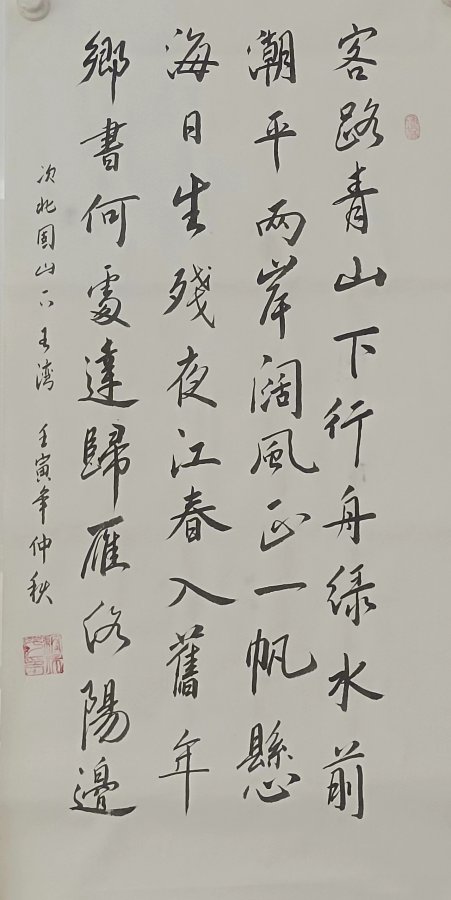 客路青山下行舟绿水前
潮平两岸阔風正一帆懸
海日生殘夜江春入舊年
鄉書何處達歸雁洛陽邊
次北固山下王湾 壬寅年仲秋